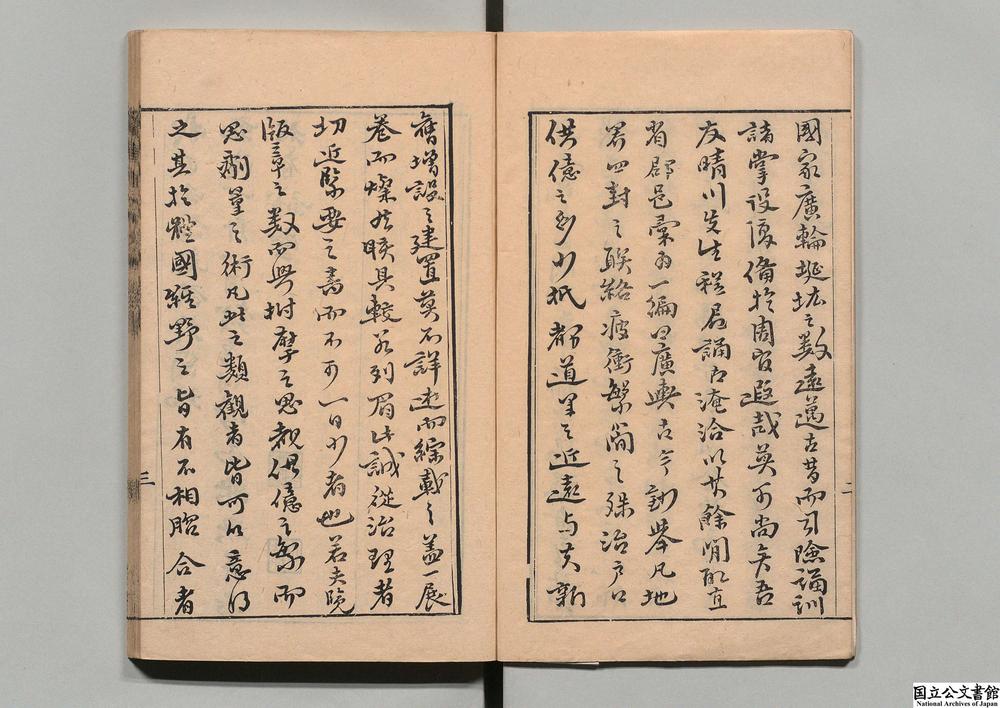 國家廣輪埏垓之數遠邁古昔而司險誦訓
諸掌設復備於周官遐哉莫可尚矣吾
友晴川先生程君誦古淹洽以其餘閒取直
省郡邑彙為一編曰廣輿古今鈔舉凡地
界四封之聯絡疲衝繁簡之殊治戶口
供億之多少抵都道里之近遠与夫新
舊增設之建置莫不詳述而綜載之蓋一展
卷而燦然眹具較若列眉此誠從治理者
切近緊要之書而不可一日少者也若夫覽
版章之數而興拊擘之思覩供億之繁而
思劑量之術凡此之類觀者皆可以意得
之其於體國經野之旨有不相脗合者
二
三
国立公文書館
National Archives of Japan